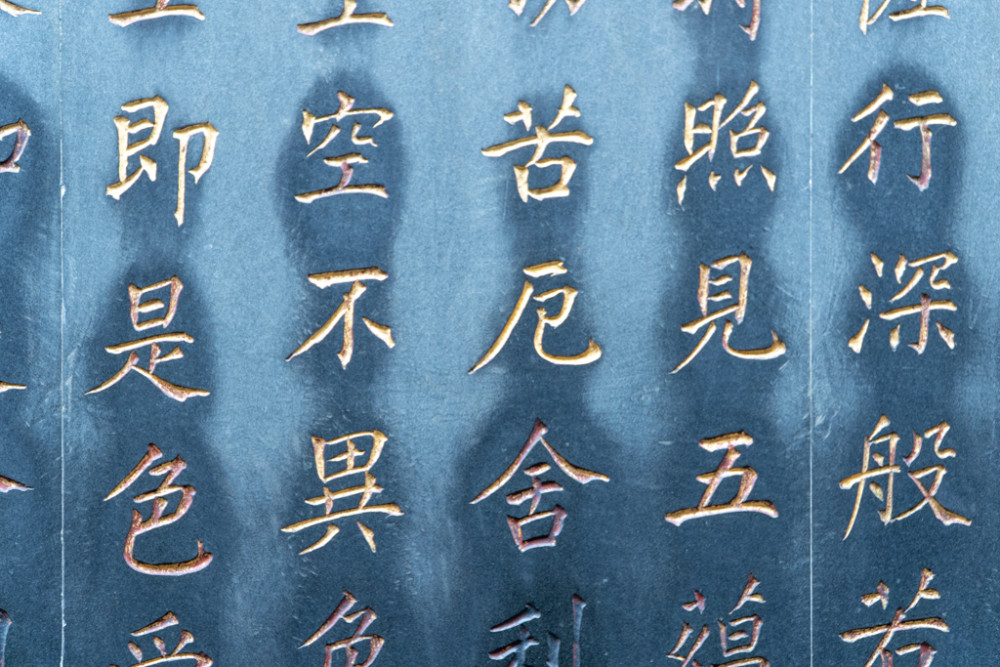 行深般若
照見五蘊
苦厄舍利
空不異色
即是色受